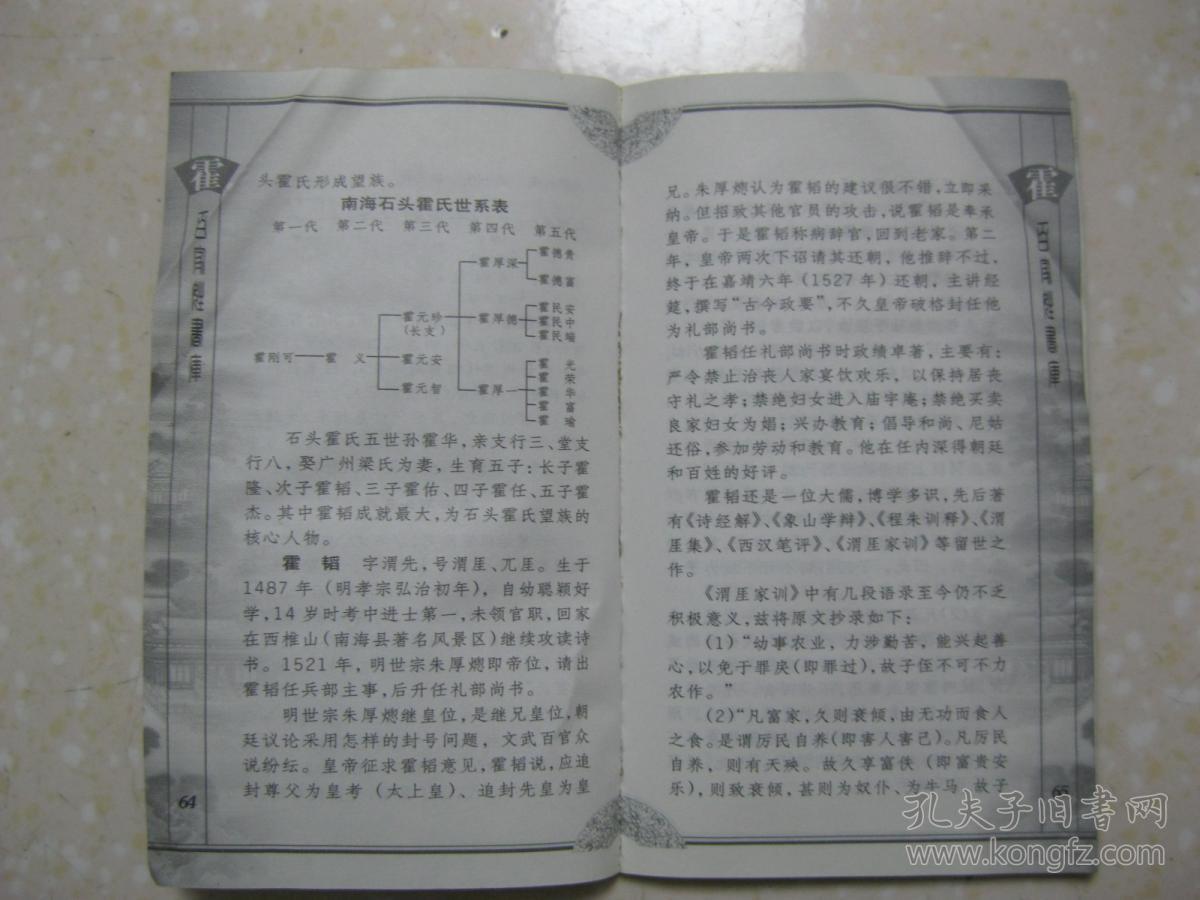 霍
百家姓书库
头霍氏形成望族。
南海石头霍氏世系表
第一代 第二代 第三代 第四代 第五代
霍德贵
霍厚深
霍德富
霍民安
霍元珍 霍厚德 霍民中
(长支) 霍民瑞
霍刚可 霍 义 霍元安
霍 光
霍 荣
霍元智 霍厚一 霍 华
霍 富
霍 瑜
石头霍氏五世孙霍华,亲支行三、堂支
行八,娶广州梁氏为妻,生育五子:长子霍
隆、次子霍韬、三子霍佑、四子霍任、五子霍
杰。其中霍韬成就最大,为石头霍氏望族的
核心人物。
霍 韬 字渭先,号渭厓、兀厓。生于
1487年(明孝宗弘治初年),自幼聪颖好
学,14岁时考中进士第一,未领官职,回家
在西椎山(南海县著名风景区)继续攻读诗
书。1521年,明世宗朱厚熜即帝位,请出
霍韬任兵部主事,后升任礼部尚书。
明世宗朱厚熜继皇位,是继兄皇位,朝
廷议论采用怎样的封号问题,文武百官众
说纷纭。皇帝征求霍韬意见,霍韬说,应追
封尊父为皇考(太上皇)、追封先皇为皇
64
霍
百家姓书库
兄。朱厚熜认为霍韬的建议很不错,立即采
纳。但招致其他官员的攻击,说霍韬是奉承
皇帝。于是霍韬称病辞官,回到老家。第二
年,皇帝两次下诏请其还朝,他推辞不过,
终于在嘉靖六年(1527年)还朝,主讲经
筵,撰写“古今政要”,不久皇帝破格封任他
为礼部尚书。
霍韬任礼部尚书时政绩卓著,主要有:
严令禁止治丧人家宴饮欢乐,以保持居丧
守礼之孝;禁绝妇女进入庙宇庵;禁绝买卖
良家妇女为娼;兴办教育;倡导和尚、尼姑
还俗,参加劳动和教育。他在任内深得朝廷
和百姓的好评。
霍韬还是一位大儒,博学多识,先后著
有《诗经解》、《象山学辩》、《程朱训释》、《渭
厓集》、《西汉笔评》、《渭厓家训》等留世之
作。
《渭厓家训》中有几段语录至今仍不乏
积极意义,兹将原文抄录如下:
(1)“幼事农业,力涉勤苦,能兴起善
心,以免于罪戾(即罪过),故子侄不可不力
农作。”
(2)“凡富家,久则衰倾,由无功而食人
之食。是谓厉民自养(即害人害己)。凡厉民
自养,则有天殃。故久享富佚(即富贵安
乐),则致衰倾,甚则为奴仆、为牛马。故子
65
孔夫子旧书网
www.kongfz.com